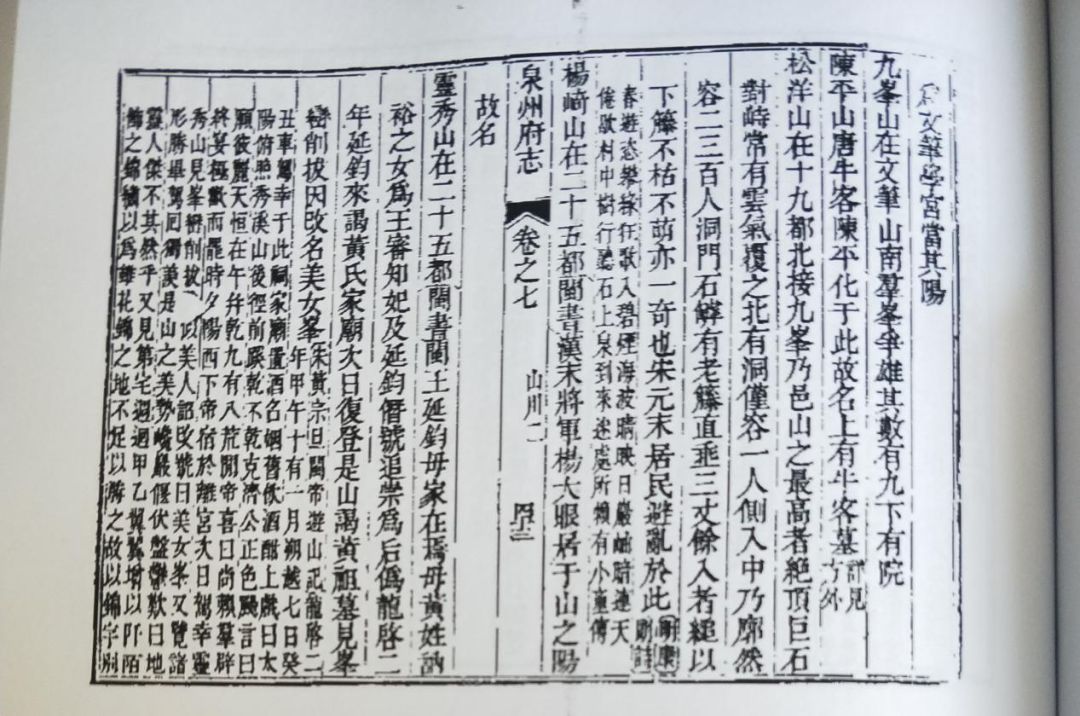 文筆學宮當其陽
九峯山在文筆山南羣峯爭雄其數有九下有院
陳平山唐牛客陳平化于此故名上有牛客墓詳見方外
松洋山在十九都北接九峯乃邑山之最高者絶頂巨石
對峙常有雲氣覆之北有洞僅容一人側入中乃廓然
容二三百人洞門石罅有老籐直垂三丈餘入者縋以
下籐不枯不蒴亦一奇也宋元末居民避亂於此
春遊恣攀緣任歌入碧煙海波晴映日巖岫暗連天
倦歇村中樹行聽石上泉到來迷處所賴有小童傳
楊崎山在二十五都閩書漢末將軍楊大眼居于山之陽
泉州府志 卷之七 山川二
故名
靈秀山在二十五都閩書閩王延鈞母家在焉母黃姓訥
裕之女爲王審知妃及延鈞僭號追崇爲后僞龍啓二
年延鈞來謁黃氏家廟次日復登是山謁黃祖墓見峯
巒削拔因改名美女峯宋黃宗旦閩帝遊山記龍啓二
年甲午十有一月朔越七日癸
丑車駕幸于此祠家廟置酒名姻舊飲酒酣上戲曰太
陽俯照秀溪山後徑前蹊乾不乾克濟公正色颺言曰
願彼麗天恒在午幷乾九有八荒閒帝喜曰尚賴羣辟
終宴極歡而罷時夕陽西下帝宿於離宮次日駕幸靈
秀山見峯巒削拔 美人詔改號曰美女峯又覽諸
形勝畢駕囘獨羡是山之美勢巉巖偃伏盤鬱歎曰地
靈人傑不其然乎又見第宅迴迴甲乙翼翼增以阡陌
飾之錦繡以爲雜花錦之地不足以勝之故以錦字別